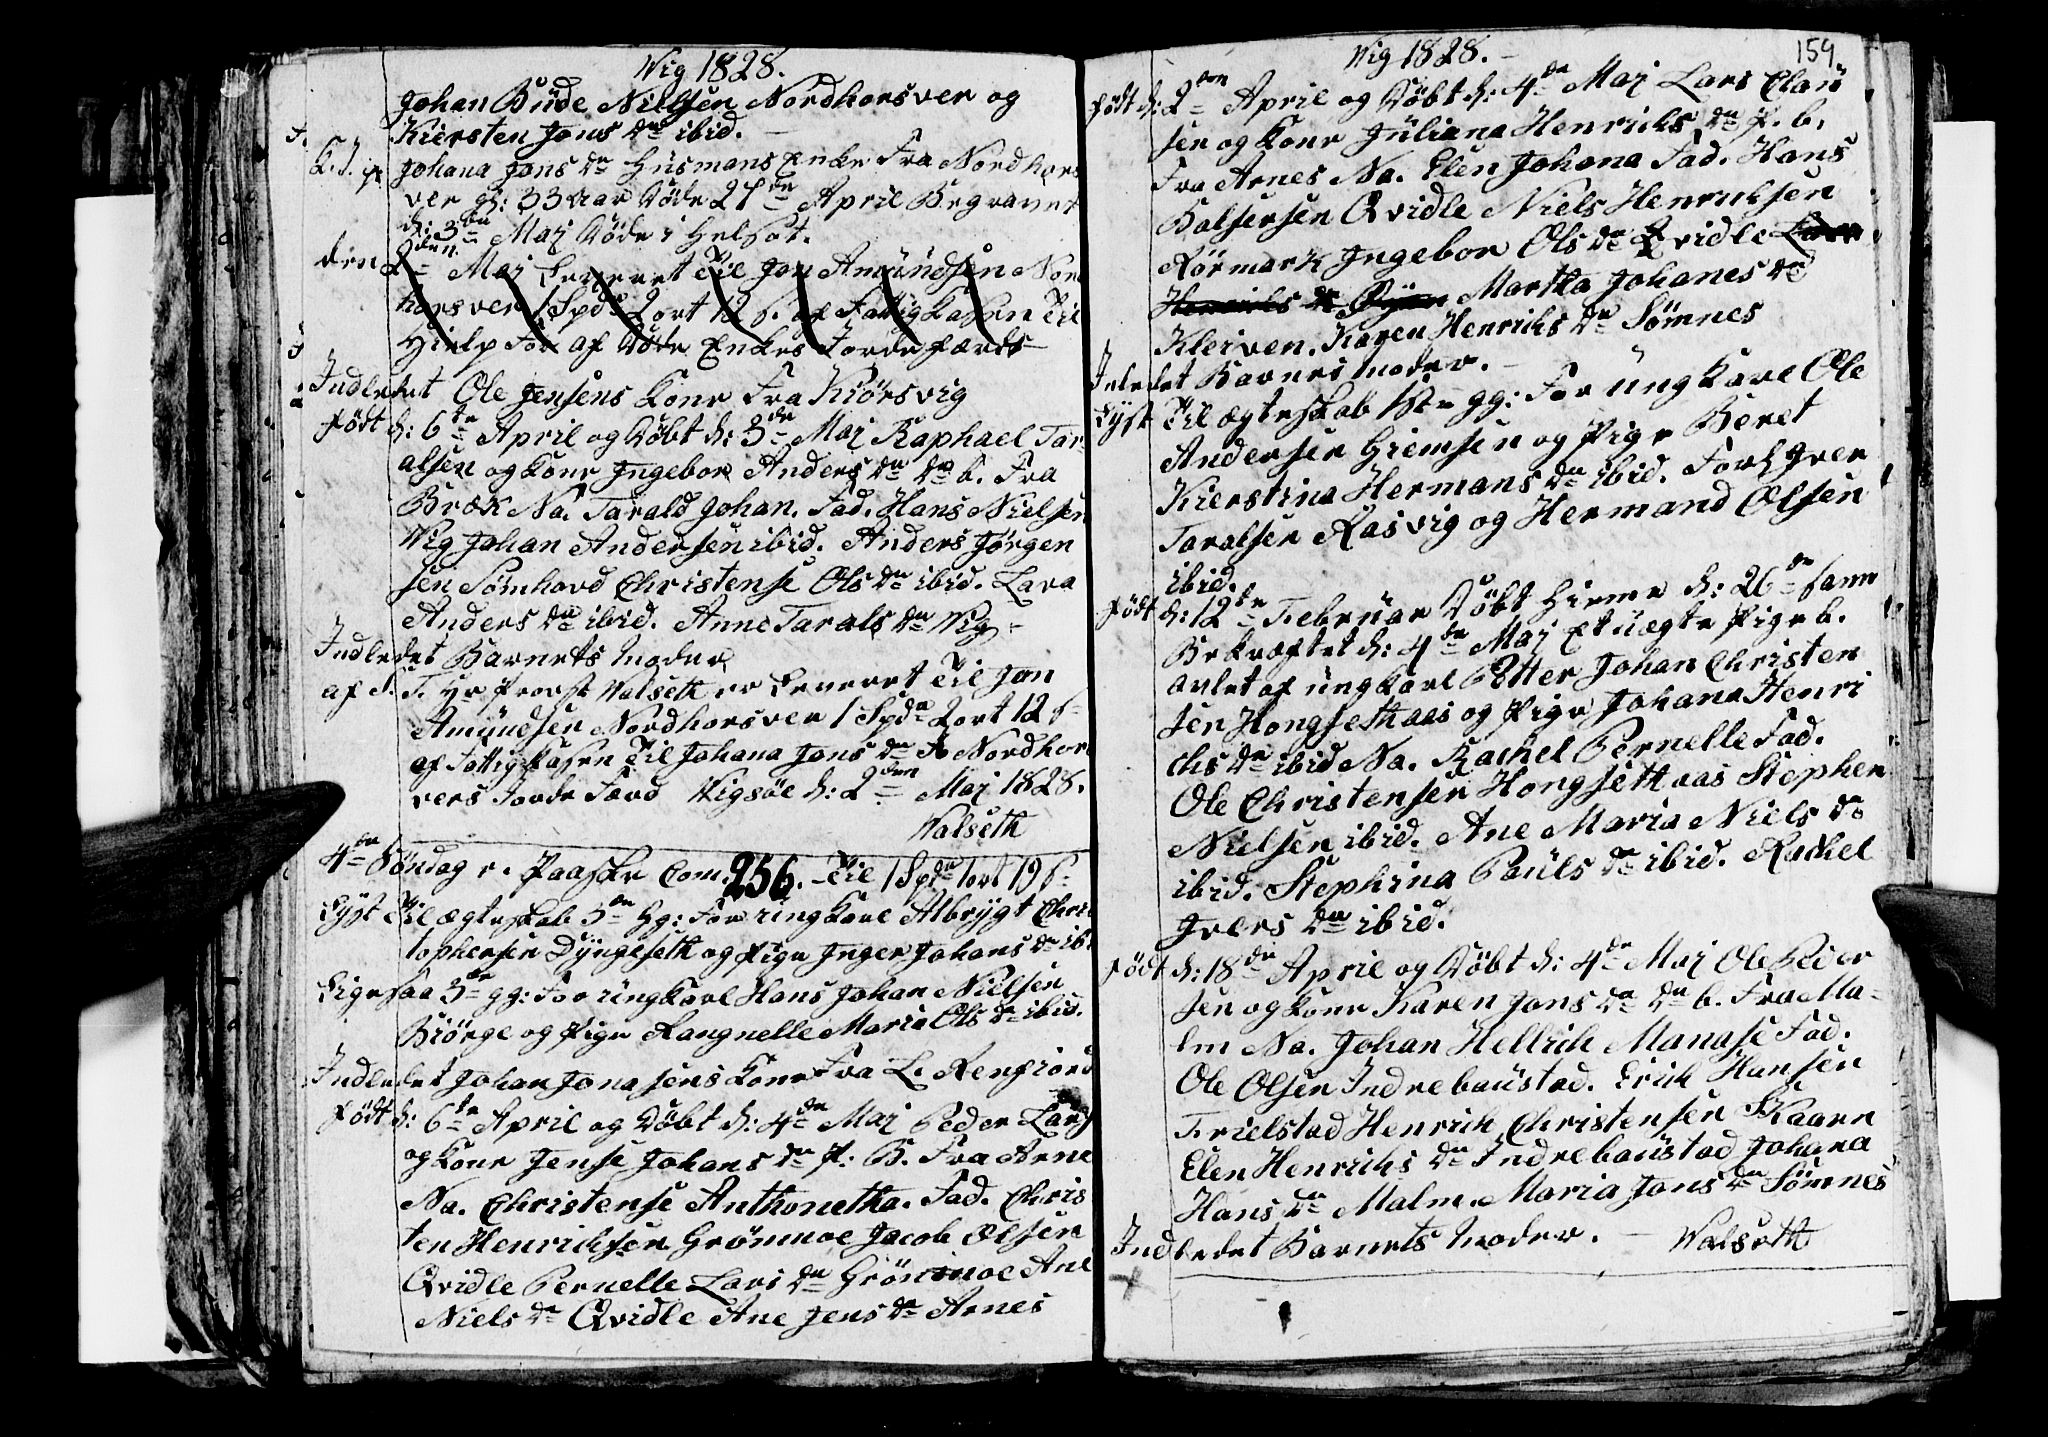 Wig 1828.
Johan Bude Nielsen Nordhorsver og
Kiersten Jons dr ibid.
Johana Jons dr Husmans Enke Fra Nordhors
ver g: 33 aar Døde 27de April Begravet
d: 3de Maj Døde i Helsot.
den 2den Maj Leveret Til Jon Amundsen Nord
horsver 1 Spd. 2 ort 12 s. af Fattig Kassen Til
Hielp For af Døde Enkes Jorde færd
Indledet Ole Jensens Kone Fra Kiørsvig
Født d: 6te April og Døbt d: 3de Maj Raphael Tar
alsen og Kone Ingebor Anders dr dr b. Fra
Bræk Na. Tarald Johan. Fad. Hans Nielsen
Wig Johan Andersen ibid. Anders Jørgen
sen Sømhovd Christense Ols dr ibid. Lava
Anders dr ibid. Anne Tarals dr Wig
Indledet Barnets Moder
af S. T. Hr Provst Walseth er Leveret Til Jon
Amundsen Nordhorsver 1 Spd 2 ort 12 s
af Fattig Kasen Til Johana Jons dr Nordhor
vers Jorde Færd Wigsøe d: 2den Maj 1828.
Walseth
4de Søndag e. Paaske Com. 256. Til 1 Spd 1 ort 19 s
Lyst Til ægteskab 3de gg: For ungkarl Albrygt Chris
tophersen Dyngeseth og Pige Inger Johans dr ibi
Ligesaa 3de gg: For ungkarl Hans Johan Nielsen
Biørge og Pige Rangnelle Maria Ols dr ibid.
Indledet Johan Jonasens Kone Fra L. Renfiord
Født d: 6te April og Døbt d: 4de Maj Peder Lars
og Kone Jense Johans dr P. B. Fra Arne
Na. Christense Anthonetha. Fad. Chris
ten Henrichsen Grømnoe Jacob Olsen
Qvidle Pernelle Lars dr Grønnoe Ane
Niels dr Qvidle Ane Jens dr Arnes
Wig 1828. 159
Født d: 2den April og Døbt d: 4de Maj Lars Clau
sen og Kone Juliana Henrichs dr P. b.
Fra Arnes Na. Elen Johana Fad. Hans
Balsersen Qvidle Niels Henrichsen
Rørmark Ingebor Ols dr Qvidle
Henrichs dr Martha Johanes dr
Kleiven. Karen Henrichs dr Sømnes
Inledet Barnets moder.
Lyst Til ægteskab 1ste gg: For ungkarl Ole
Andersen Giemsen og Pige Beret
Kierstina Hermans dr ibid. Forl Iver
Taralsen Rasvig og Hermand Olsen
ibid.
Født d: 12te Februar Døbt hieme d: 26de samme
Bekræftet d: 4de Maj Et uægte Pigeb.
avlet af ungkarl Petter Johan Christen
sen Hongsethaas og Pige Johana Henri
chs dr ibid Na. Rachel Pernelle Fad.
Ole Christensen Hongsethaas Stephen
Nielsen ibid. Ane Maria Niels dr
ibid. Stephina Pauls dr ibid. Rachel
Ivers dr ibid.
Født d: 18de April og Døbt d: 4de Maj Ole Peder
sen og Kone Karen Jons dr dr b. Fra Ma-
lm Na. Johan Hellrich Manase Fad.
Ole Olsen Indrebaustad. Erich Hansen
Frielstad Henrich Christensen Skaaen
Elen Henrichs dr Indrebaustad Johana
Hans dr Malm. Maria Jons dr Sømnes
Indledet Barnets moder. Walseth